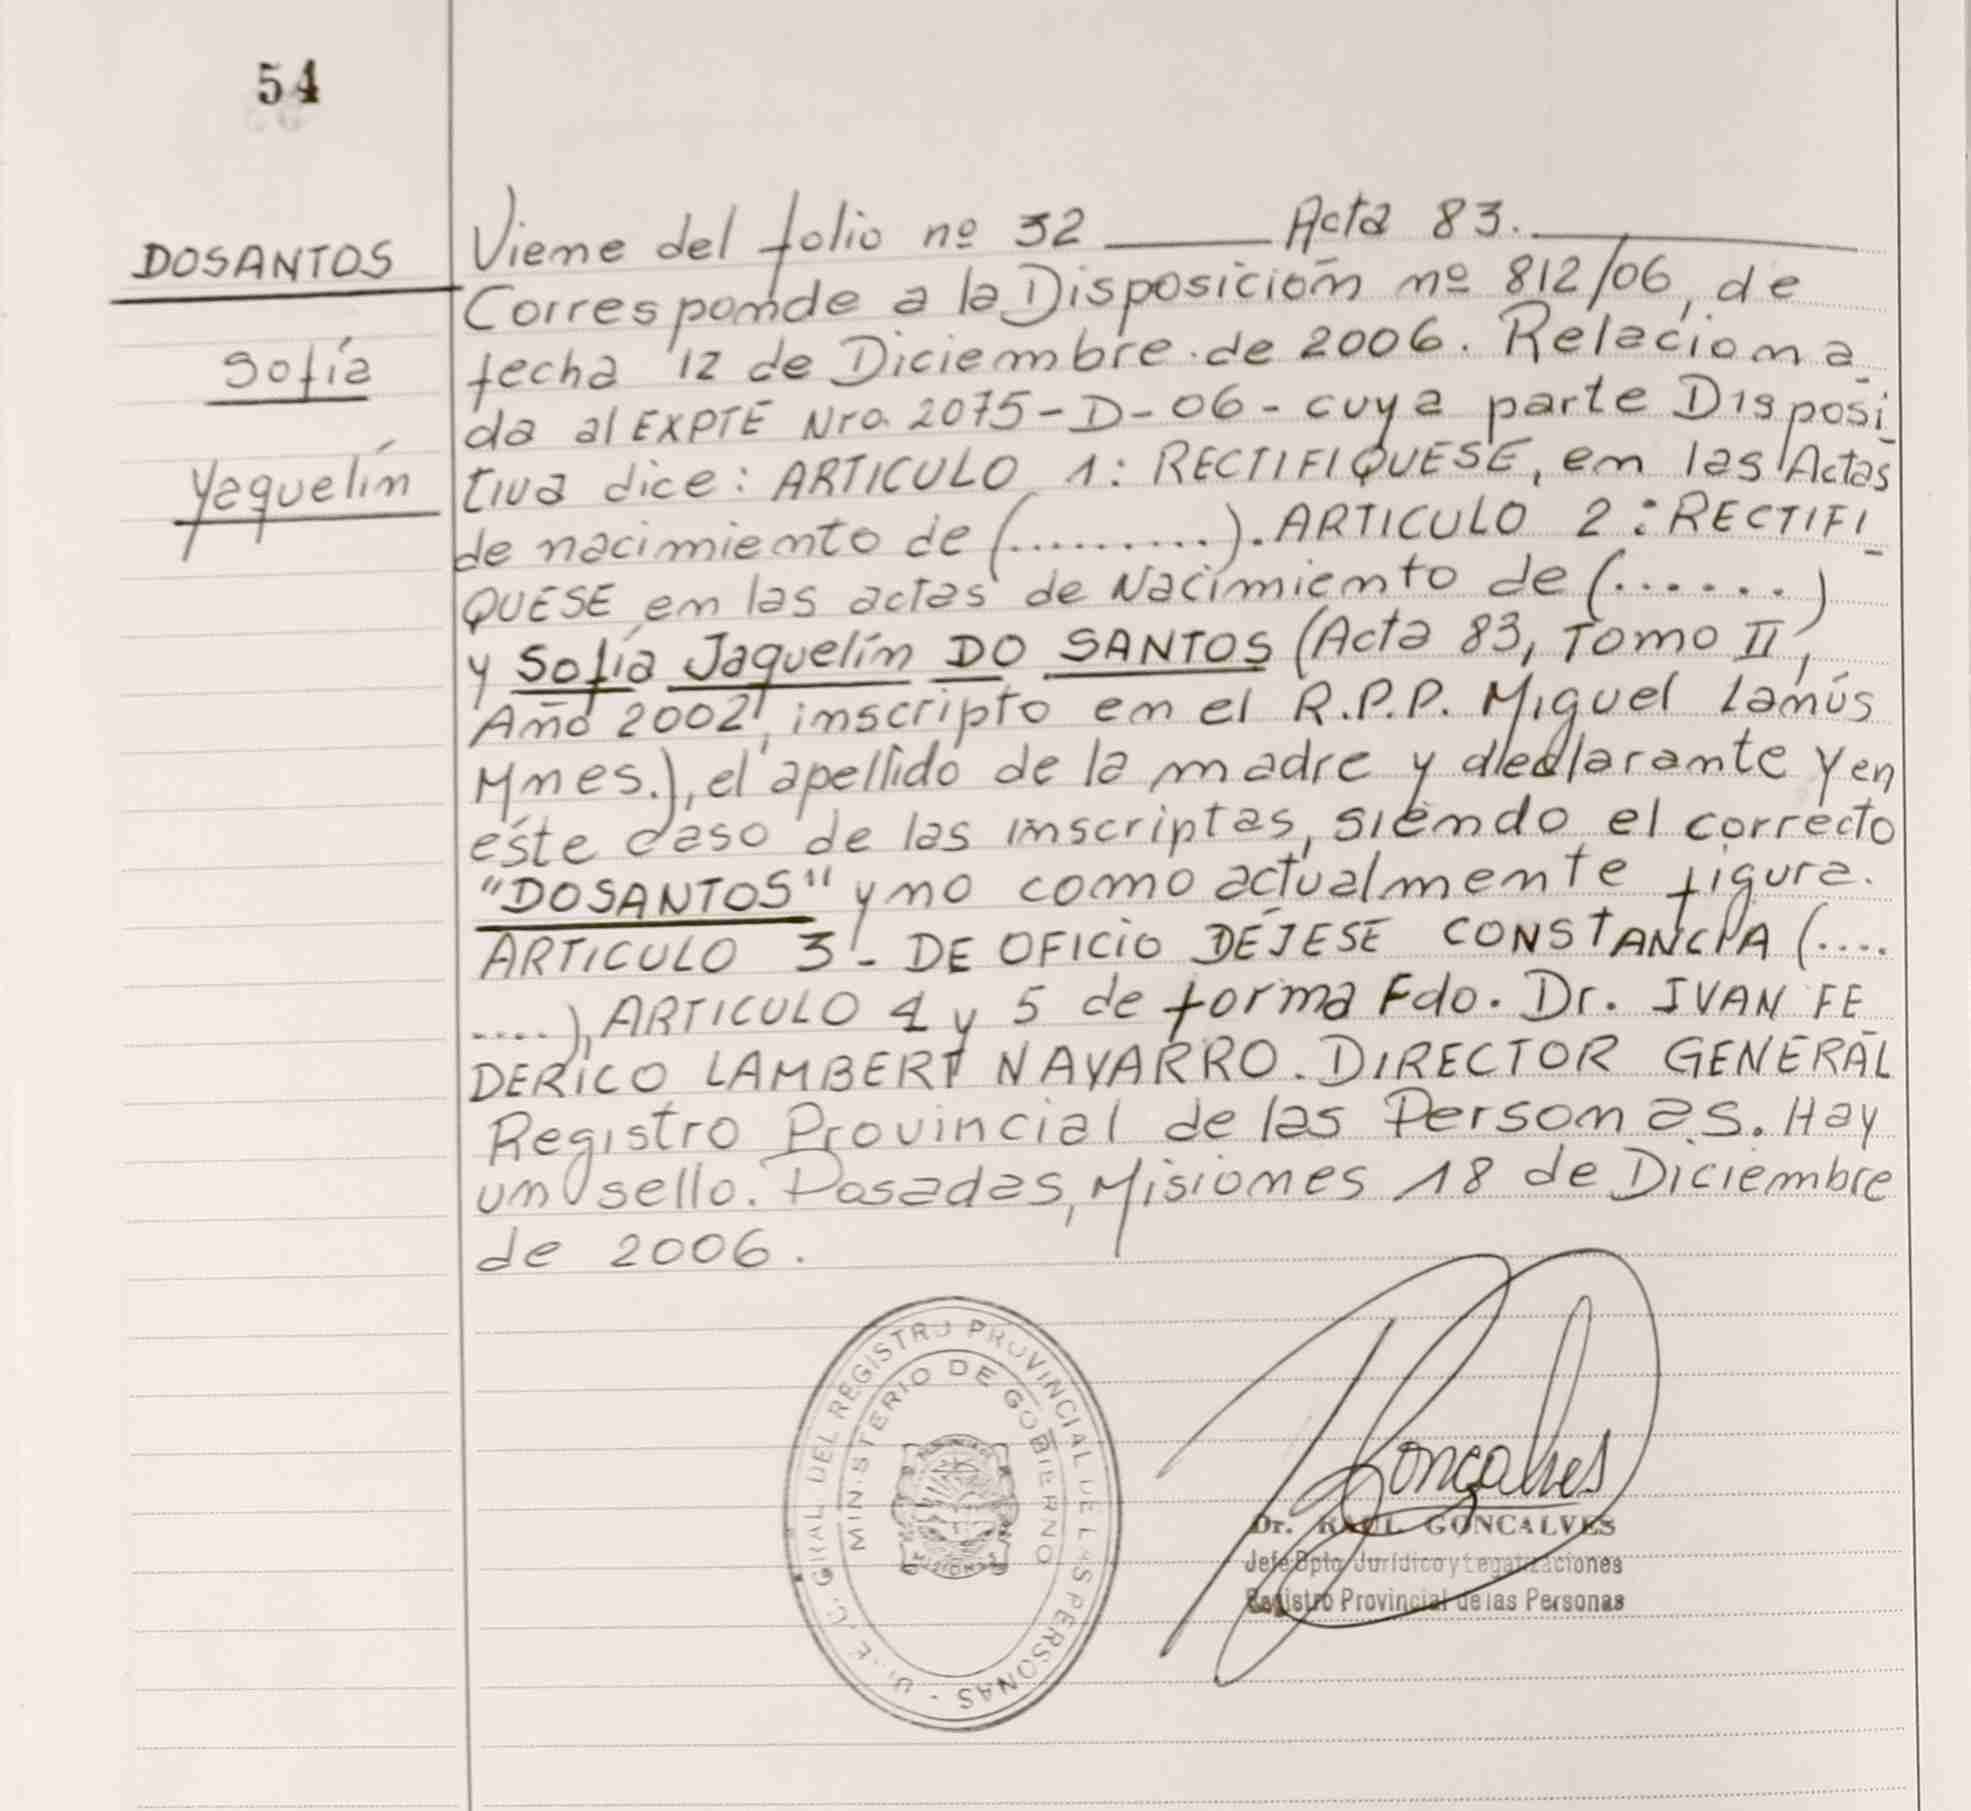 54
DOSANTOS
Sofía
Yaquelín
Viene del folio nº 32 ——— Acta 83. ———
Corresponde a la Disposición nº 812/06, de
fecha 12 de Diciembre de 2006. Relaciona
da al EXPTE Nro. 2075-D-06- cuya parte Disposi
tiva dice: ARTICULO 1: RECTIFIQUESE, en las Actas
de nacimiento de (..........). ARTICULO 2: RECTIFI
QUESE en las actas de Nacimiento de (......)
y Sofía Jaquelín DO SANTOS (Acta 83, Tomo II,
Año 2002, inscripto en el R.P.P. Miguel Lanús
Mnes.), el apellido de la madre y declarante y en
éste caso de las inscriptas, siendo el correcto
"DOSANTOS" y no como actualmente figura.
ARTICULO 3 - DE OFICIO DÉJESE CONSTANCIA (....
....), ARTICULO 4 y 5 de forma Fdo. Dr. IVAN FE
DERICO LAMBERT NAVARRO. DIRECTOR GENERAL
Registro Provincial de las Personas. Hay
un sello. Posadas, Misiones 18 de Diciembre
de 2006.
GRAL DEL REGISTRO PROVINCIAL DE LAS PERSONAS
MINISTERIO DE GOBIERNO
MISIONES
Goncalves
Dr. RAUL GONCALVES
Jefe Dpto. Jurídico y Legalizaciones
Registro Provincial de las Personas